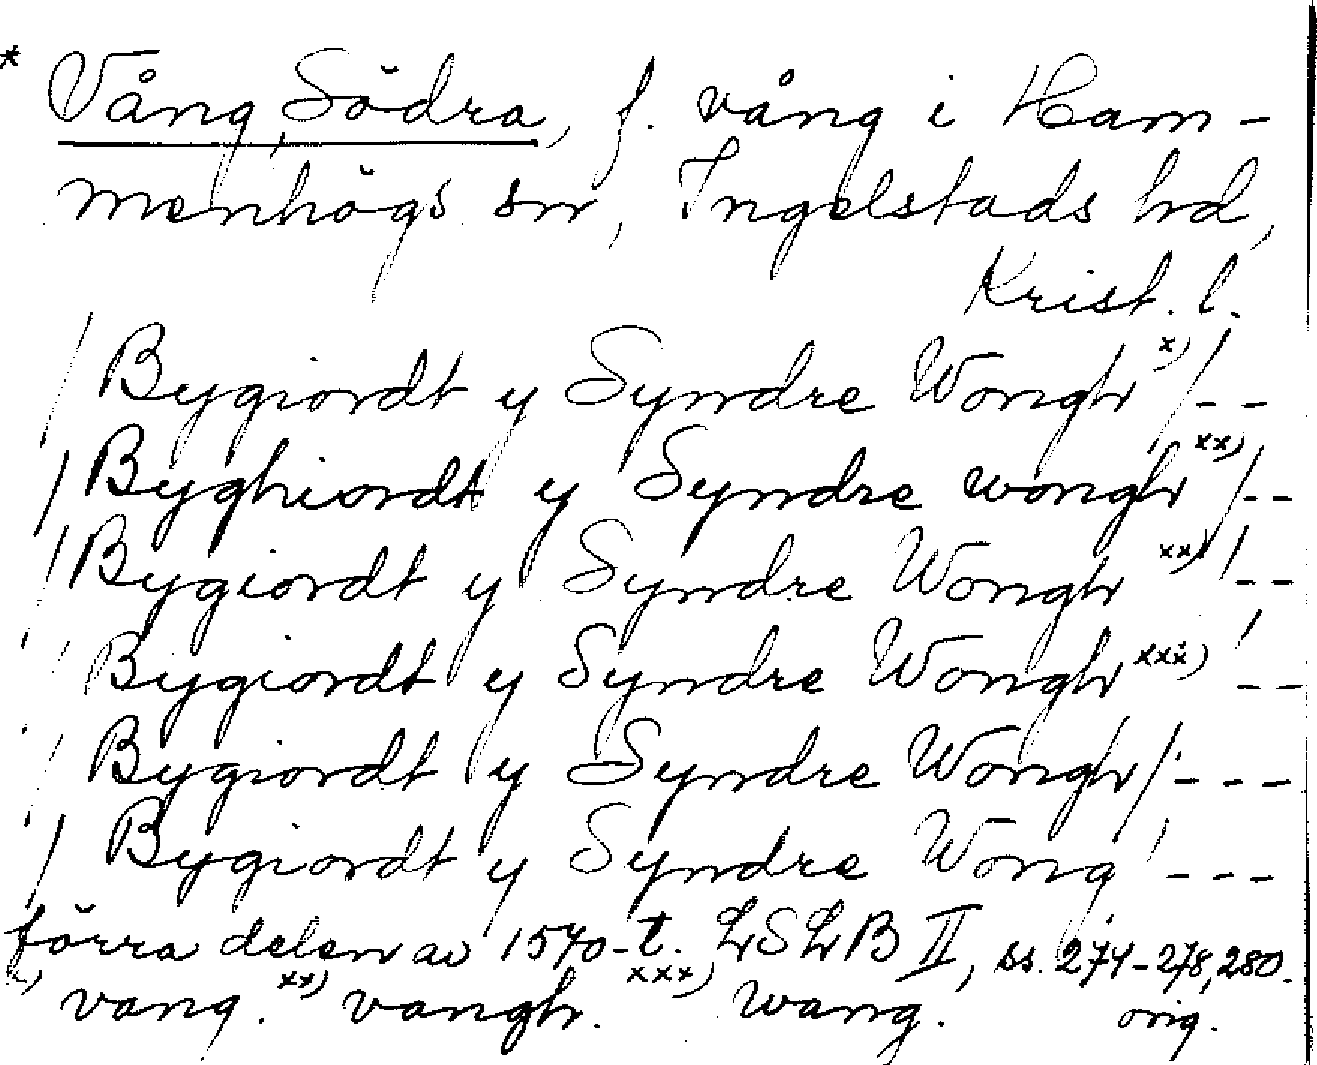 * Vång, Södra, f. vång i Ham-
menhögs sn, Ingelstads hd,
Krist. l.
/Bygiordt y Syndre Wongh x)/--
/Byghiordt y Syndre wongh xx)/--
/Bygiordt y Syndre Wongh xx)/--
/Bygiordt y Syndre Wongh xxx)/--
/Bygiordt y Syndre Wongh/---
/Bygiordt y Syndre Wong/---
förra delen av 1570-t. LSLB II, ss. 274-278, 280.
x) vang. xx) vangh. xxx) Wang. orig.